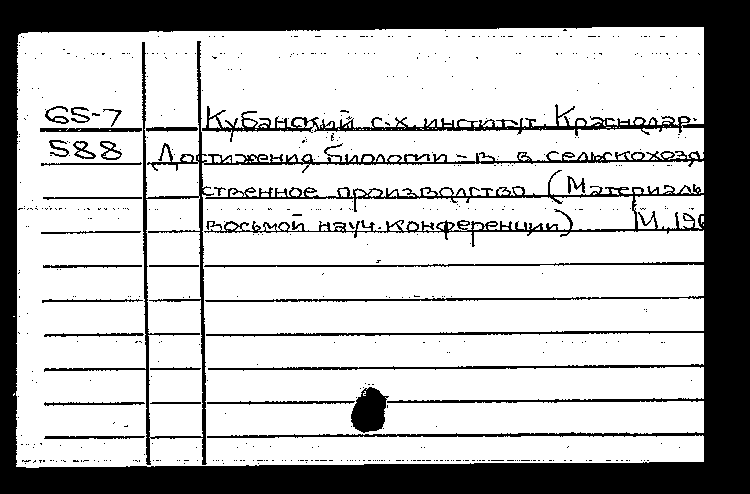 65-7 Кубанский с.х. институт. Краснодар.
588 Достижения биологии - в сельскохозя
ственное производство (Материалы
восьмой науч. конференции) М., 196